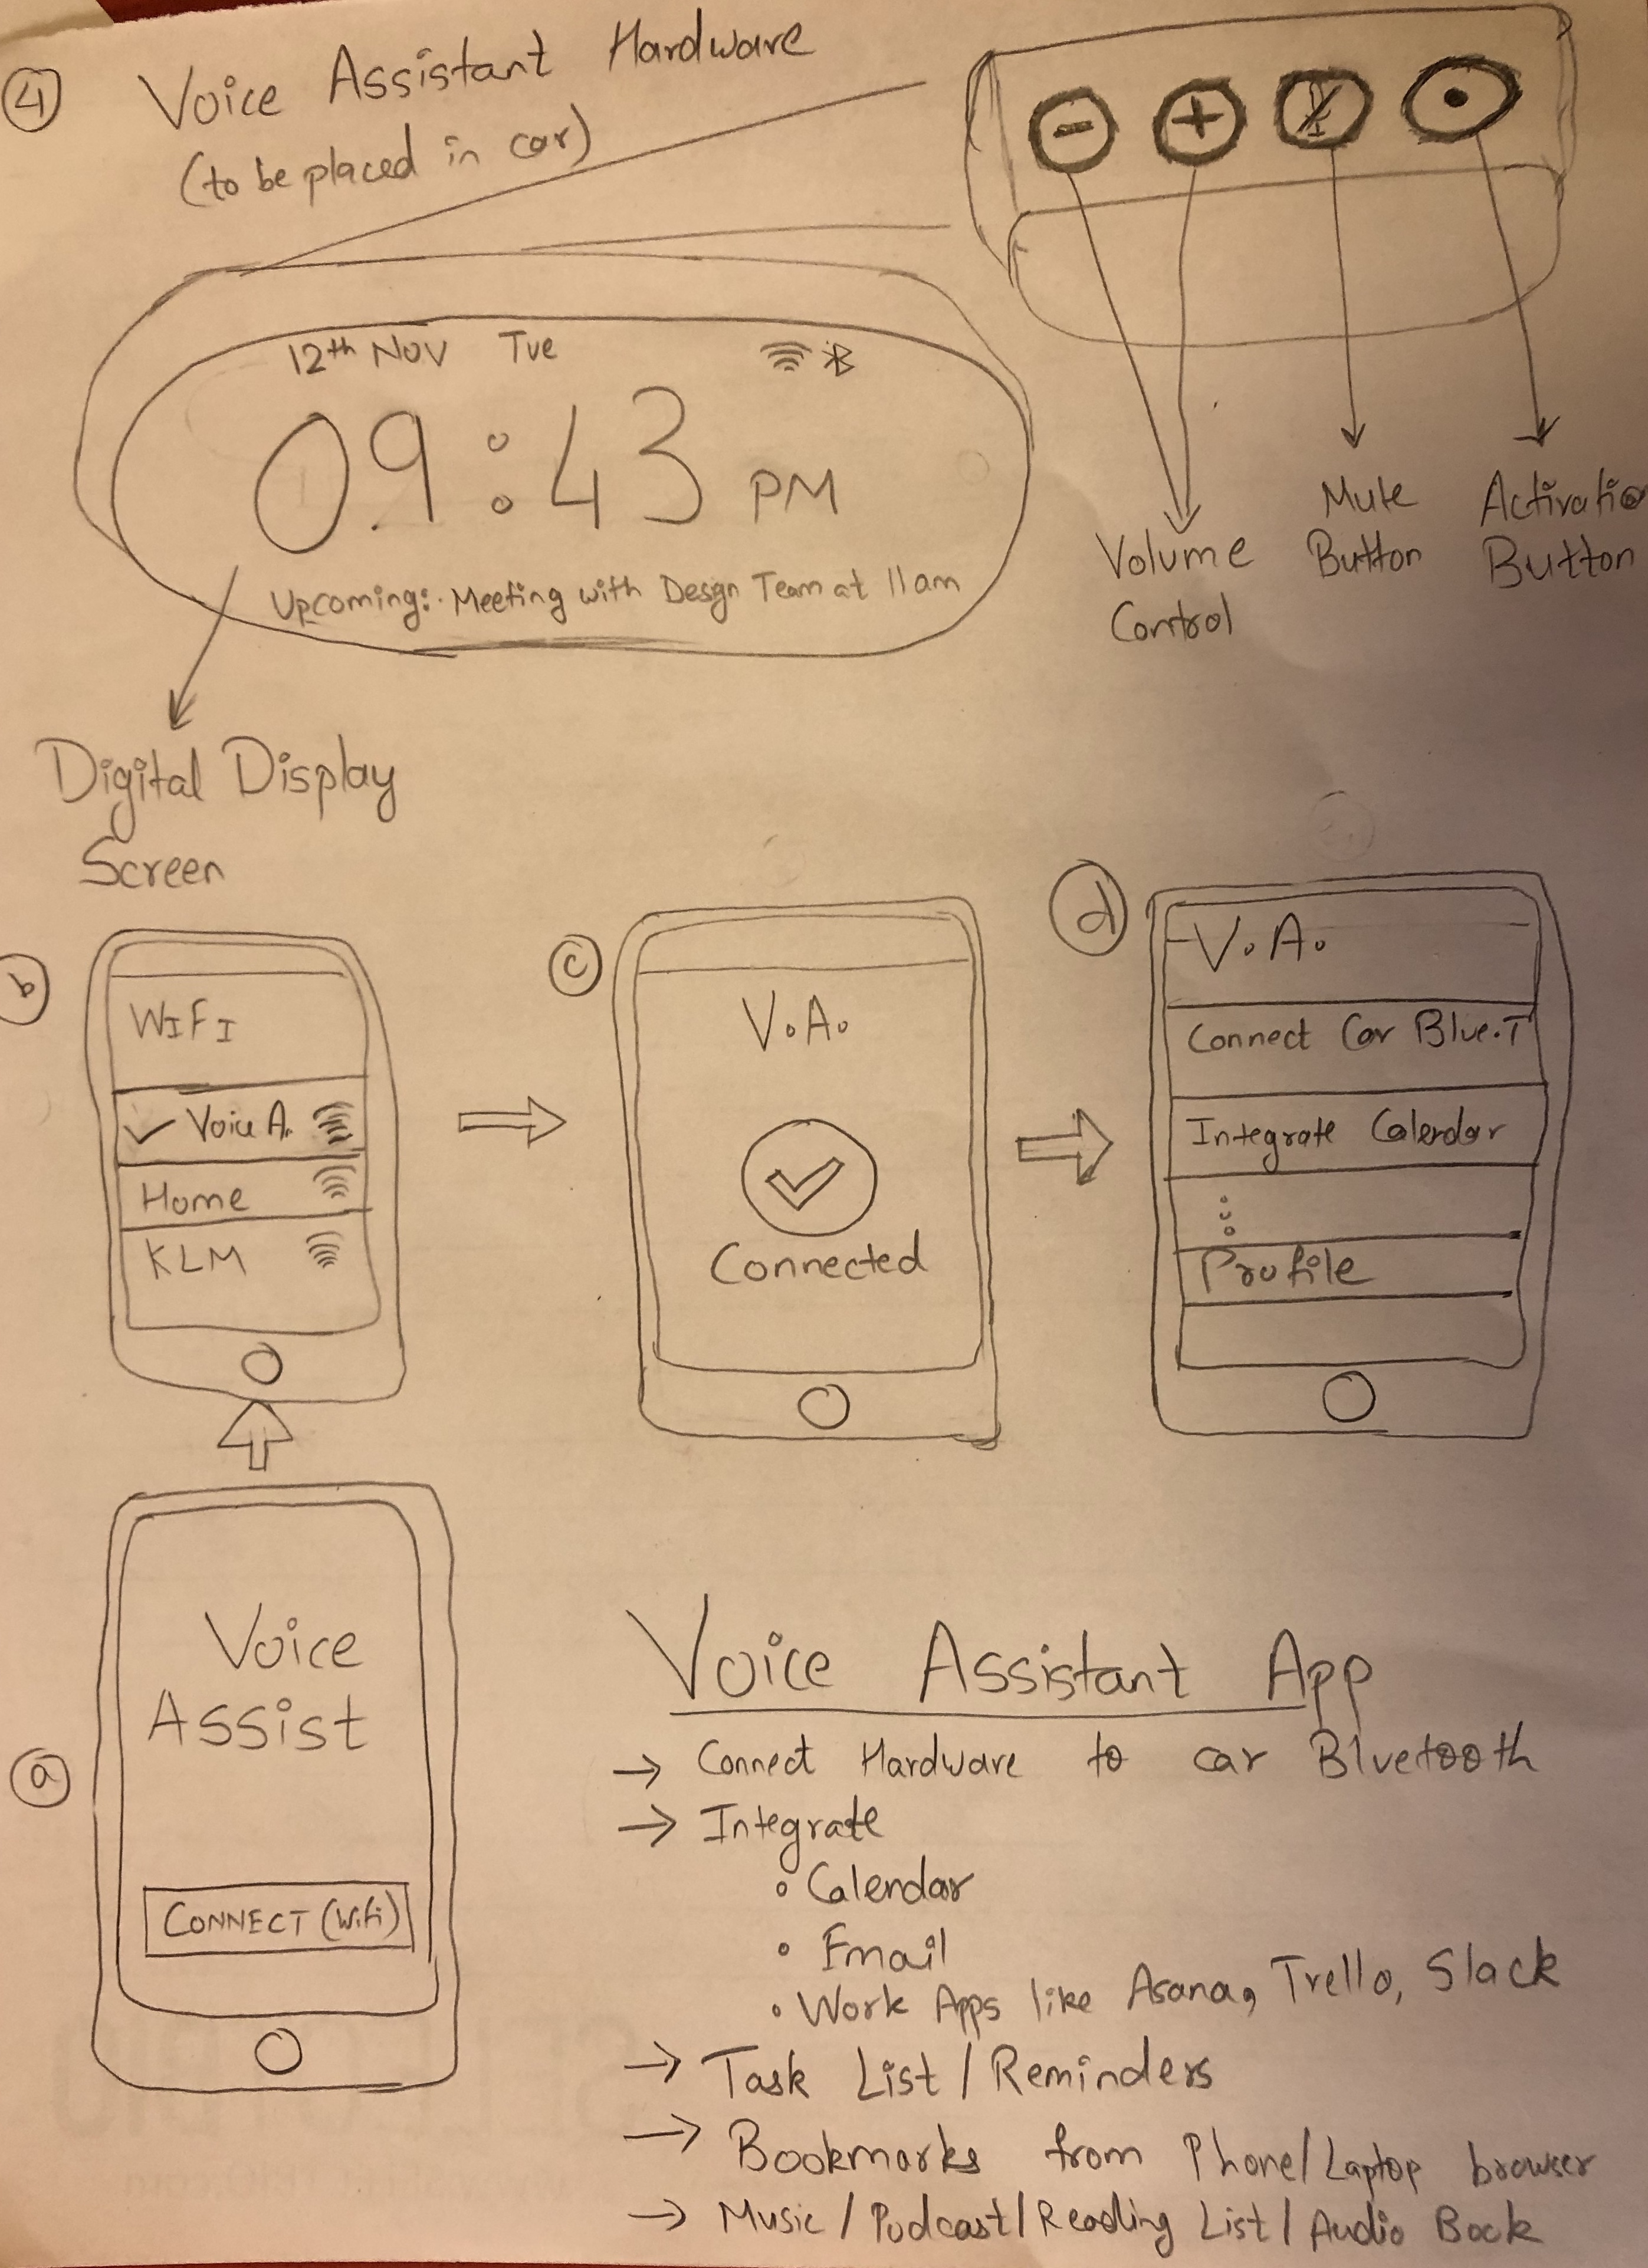 4 Voice Assistant Hardware
(to be placed in car)
- +
12th NOV Tue
09:43 PM
Upcoming: Meeting with Design Team at 11am
Volume
Control
Mute
Button
Activatio
Button
Digital Display
Screen
b
WIFI
✓ Voice A.
Home
KLM
c
V.A.
Connected
d
V.A.
Connect Car Blue.T
Integrate Calendar
Profile
a
Voice
Assist
CONNECT (Wifi)
Voice Assistant App
→ Connect Hardware to car Bluetooth
→ Integrate
• Calendar
• Email
• Work Apps like Asana, Trello, Slack
→ Task List / Reminders
→ Bookmarks from Phone/Laptop browser
→ Music / Podcast / Reading List / Audio Book